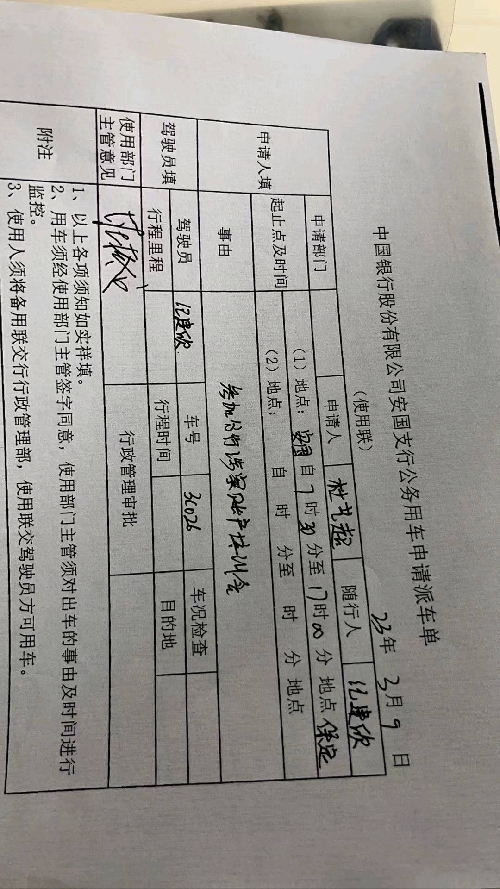 中国银行股份有限公司安国支行公务用车申请派车单
（使用联）
23年 3月 9 日
申请人填 申请部门 申请人 随行人
起止点及时间 （1）地点：安国 自 7 时 30 分至 17 时 00 分 地点 保定
（2）地点： 自 时 分至 时 分 地点
事由
驾驶员填 驾驶员 车号 3C026 车况检查
行程里程 行程时间 目的地
使用部门主管意见 行政管理审批
附注
1、以上各项须知如实样填。
2、用车须经使用部门主管签字同意，使用部门主管须对出车的事由及时间进行
监控。
3、使用人须将备用联交行行政管理部，使用联交驾驶员方可用车。